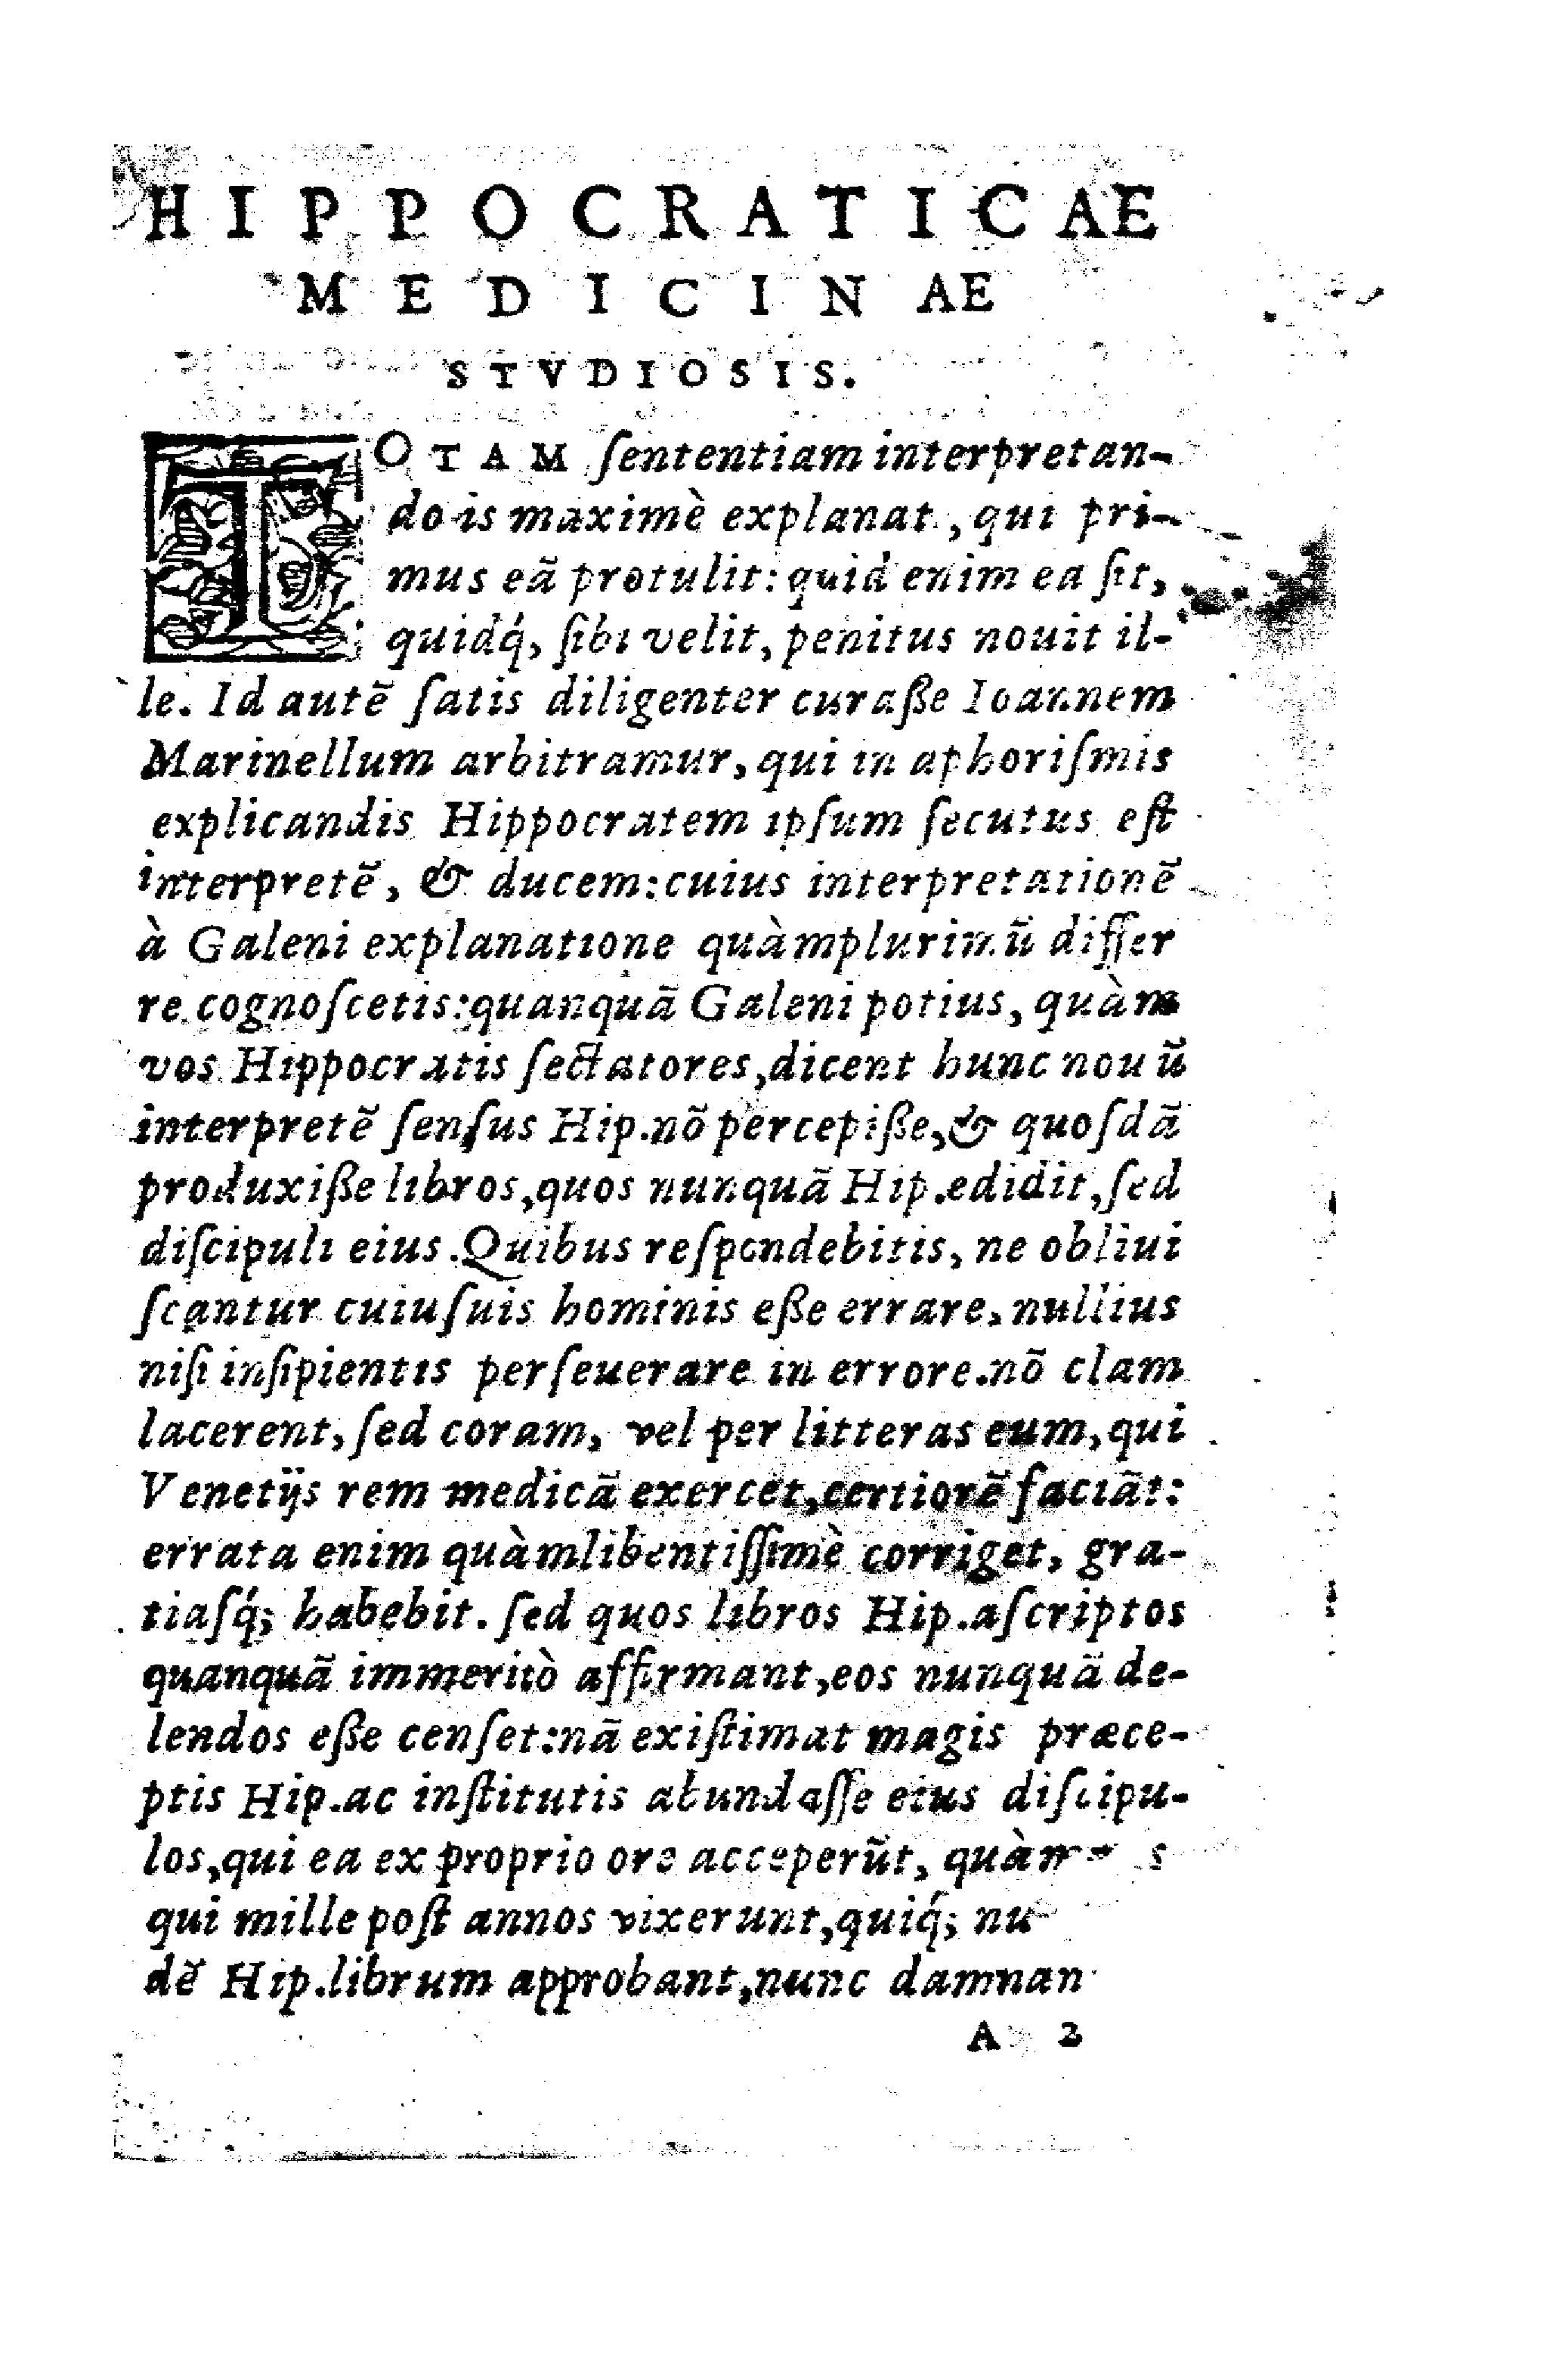 HIPPOCRATICAE
MEDICINAE
STVDIOSIS.
TOTAM ſententiam interpretan-
do is maximè explanat, qui pri-
mus eã protulit: quid enim ea ſit,
quidq́, ſibi velit, penitus nouit il-
le. Id autẽ ſatis diligenter curaße Ioannem
Marinellum arbitramur, qui in aphoriſmis
explicandis Hippocratem ipſum ſecutus eſt
interpretẽ, & ducem: cuius interpretationẽ
à Galeni explanatione quàmplurimũ differ
re cognoſcetis: quanquã Galeni potius, quàm
vos Hippocratis ſectatores, dicent hunc nouũ
interpretẽ ſenſus Hip. nõ percepiße, & quoſdã
produxiße libros, quos nunquã Hip. edidit, ſed
diſcipuli eius. Quibus reſpondebitis, ne obliui
ſcantur cuiuſuis hominis eße errare, nullius
niſi inſipientis perſeuerare in errore. nõ clam
lacerent, ſed coram, vel per litteras eum, qui
Venetijs rem medicã exercet, certiorẽ faciãt:
errata enim quàmlibentiſſimè corriget, gra-
tiaſq́; habebit. ſed quos libros Hip. aſcriptos
quanquã immeritò affirmant, eos nunquã de-
lendos eße cenſet: nã exiſtimat magis præce-
ptis Hip. ac inſtitutis abundaſſe eius diſcipu-
los, qui ea ex proprio ore acceperũt, quàm
qui mille poſt annos vixerunt, quiq́;
dẽ Hip. librum approbant, nunc damnan
A 2